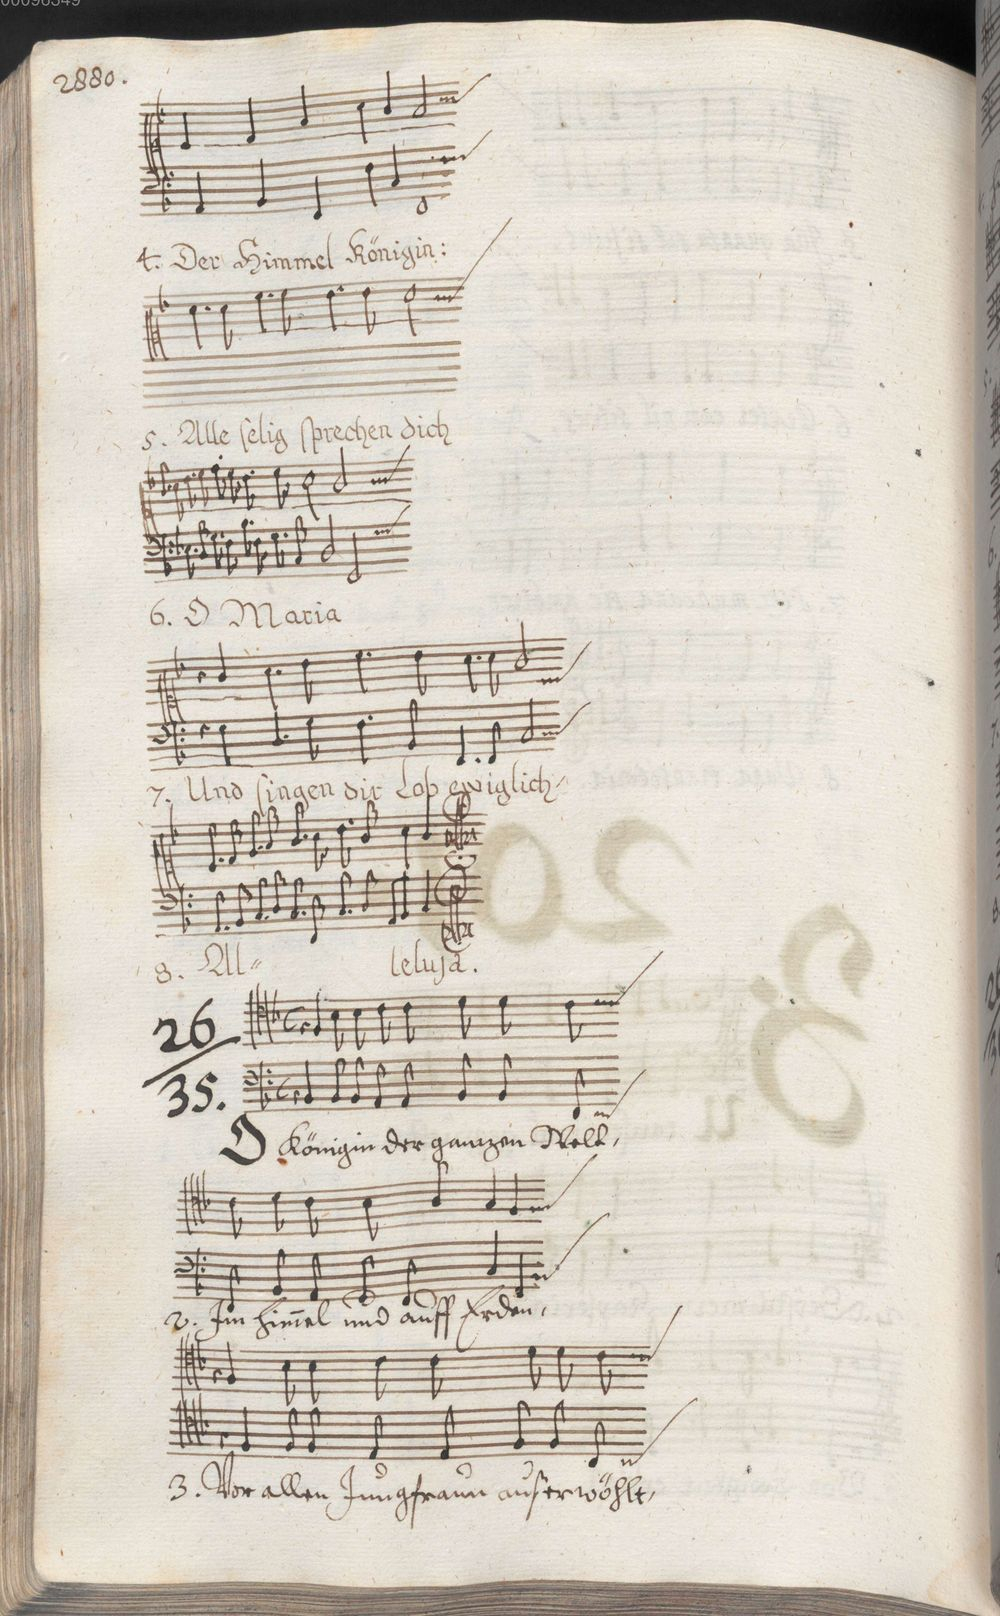 00098349
2880.
4. Der Himmel Königin:
5. Alle selig sprechen dich
6. O Maria
7. Und singen dir Lob ewiglich
8. Al= leluja.
26
35.
O Königin der ganzen Welt,
2. Im Him̄el und auff Erden,
3. Vor allen Jungfraun außerwöhlt,